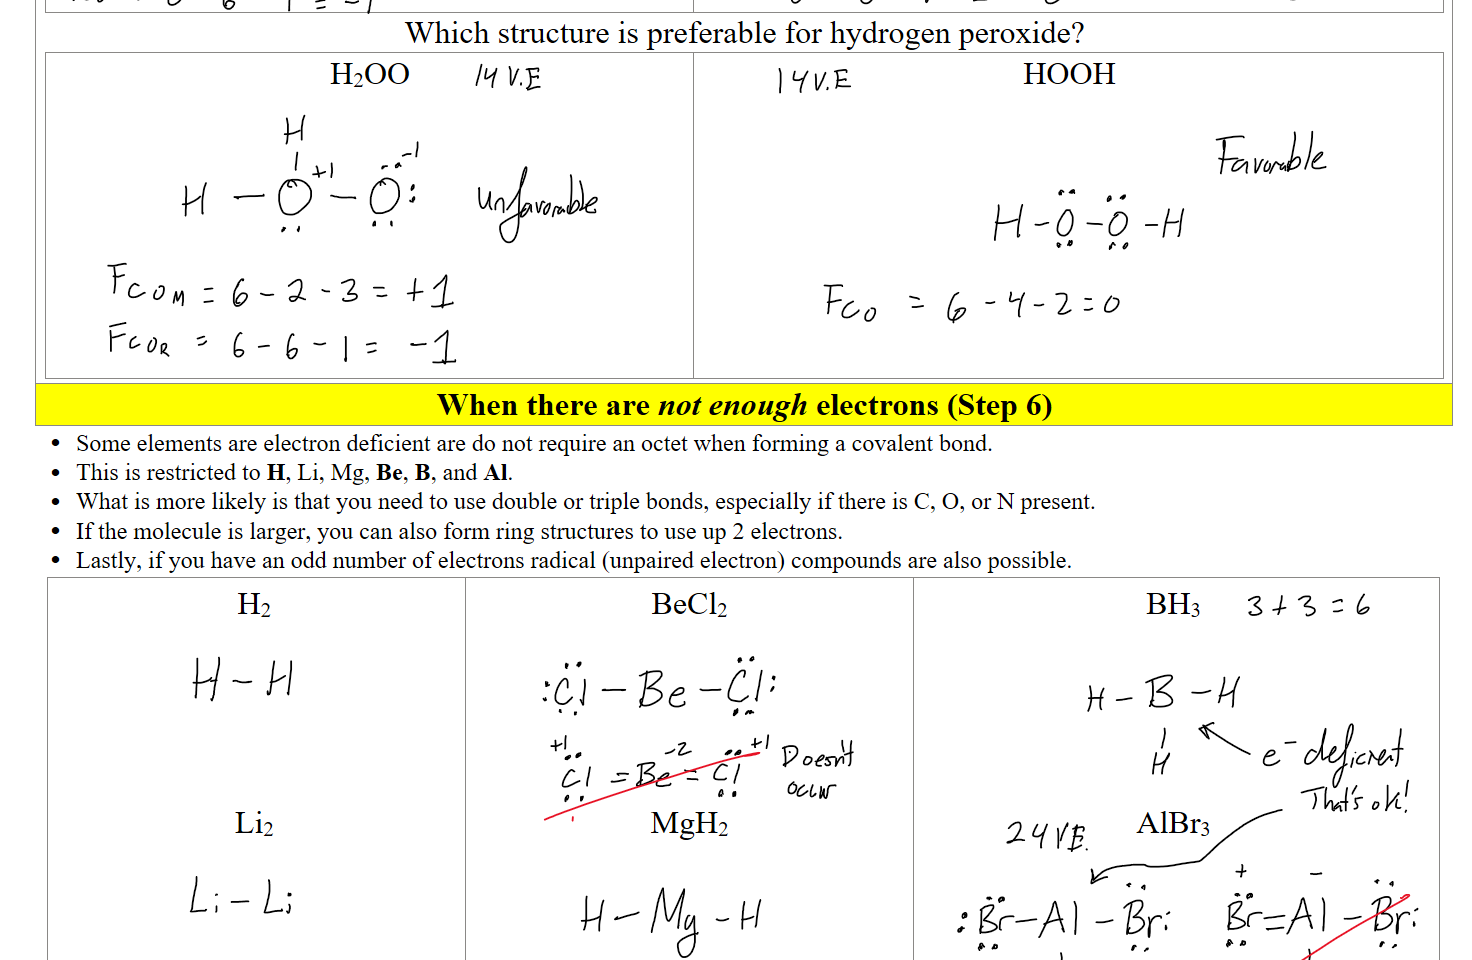 Which structure is preferable for hydrogen peroxide?
H₂OO 14 V.E
H
H – O +1 – O: -1 unfavorable
FCOM = 6 - 2 - 3 = +1
FCOR = 6 - 6 - 1 = -1
14 V.E HOOH
Favorable
H - O - O - H
FCO = 6 - 4 - 2 = 0
When there are not enough electrons (Step 6)
• Some elements are electron deficient are do not require an octet when forming a covalent bond.
• This is restricted to H, Li, Mg, Be, B, and Al.
• What is more likely is that you need to use double or triple bonds, especially if there is C, O, or N present.
• If the molecule is larger, you can also form ring structures to use up 2 electrons.
• Lastly, if you have an odd number of electrons radical (unpaired electron) compounds are also possible.
H₂
H – H
BeCl₂
:Cl – Be – Cl:
+1 -2 +1
Cl = Be = Cl Doesn't
occur
BH₃ 3 + 3 = 6
H – B – H
H
e⁻ deficient
That's ok!
Li₂
Li – Li
MgH₂
H – Mg – H
24 V.E. AlBr₃
+ -
:Br – Al – Br: Br = Al – Br: